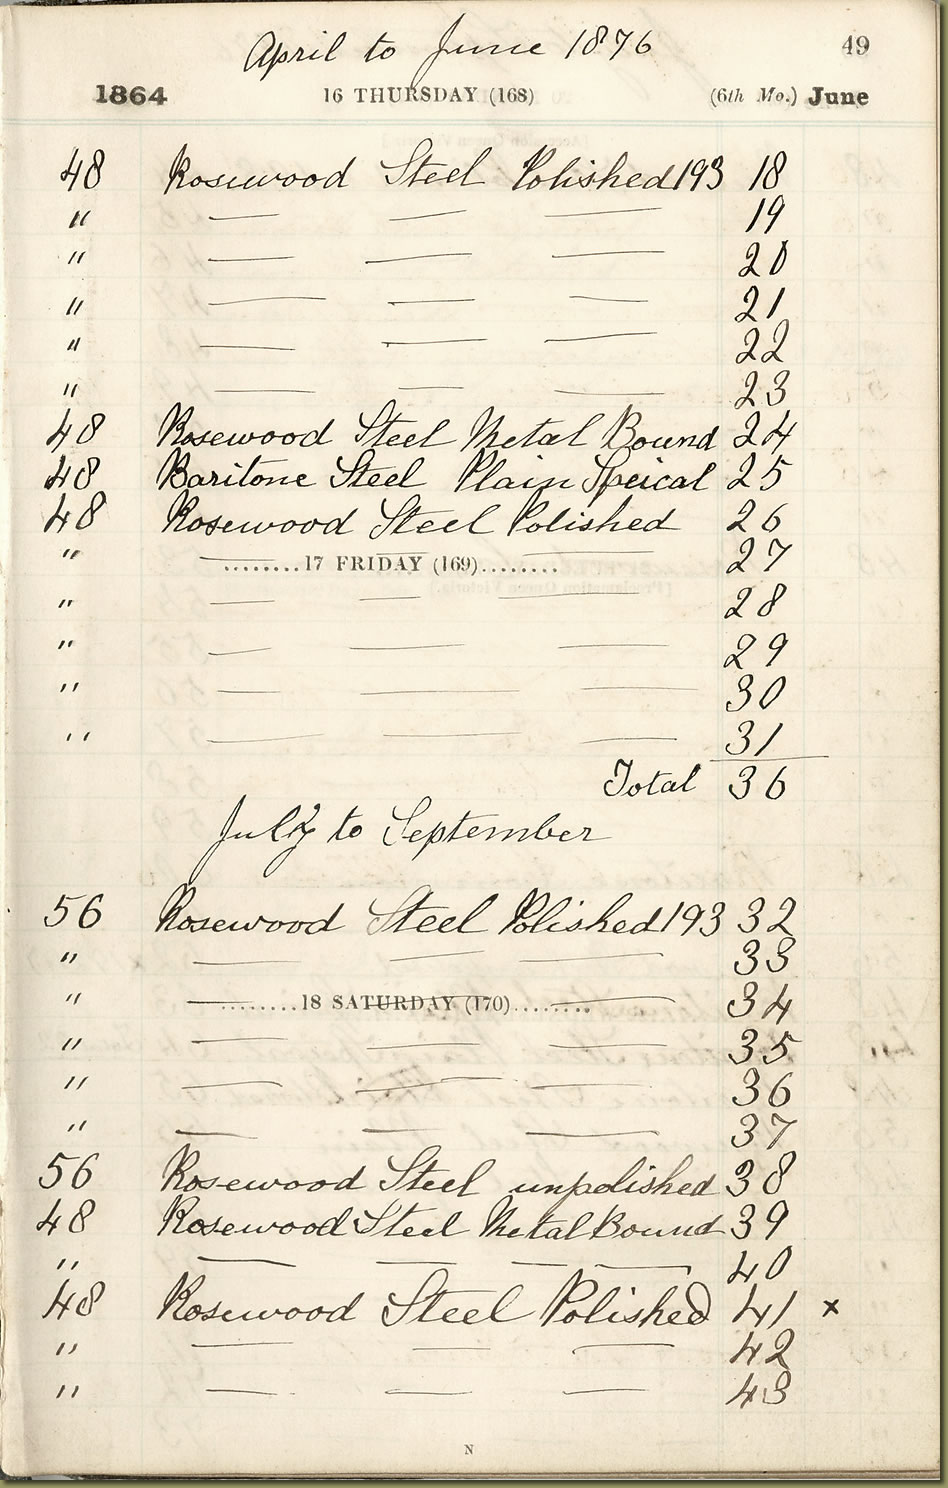 April to June 1876
49
1864 16 THURSDAY (168) (6th Mo.) June
48 Rosewood Steel Polished 193 18
" — — — 19
" — — — 20
" — — — 21
" — — — 22
" — — — 23
48 Rosewood Steel Metal Bound 24
48 Baritone Steel Plain Speical 25
48 Rosewood Steel Polished 26
" — — — 27
........17 FRIDAY (169)........
" — — — 28
" — — — 29
" — — — 30
" — — — 31
Total 36
July to September
56 Rosewood Steel Polished 193 32
" — — — 33
" — — — 34
........18 SATURDAY (170)........
" — — — 35
" — — — 36
" — — — 37
56 Rosewood Steel unpolished 38
48 Rosewood Steel Metal Bound 39
" — — — — 40
48 Rosewood Steel Polished 41 x
" — — — 42
" — — — 43
N